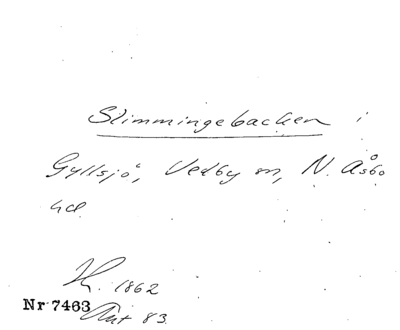 Slimmingebacken i
Gyllsjö, Vedby sn, N. Åsbo
hd
H. 1862
Nr 7463
Ant 83